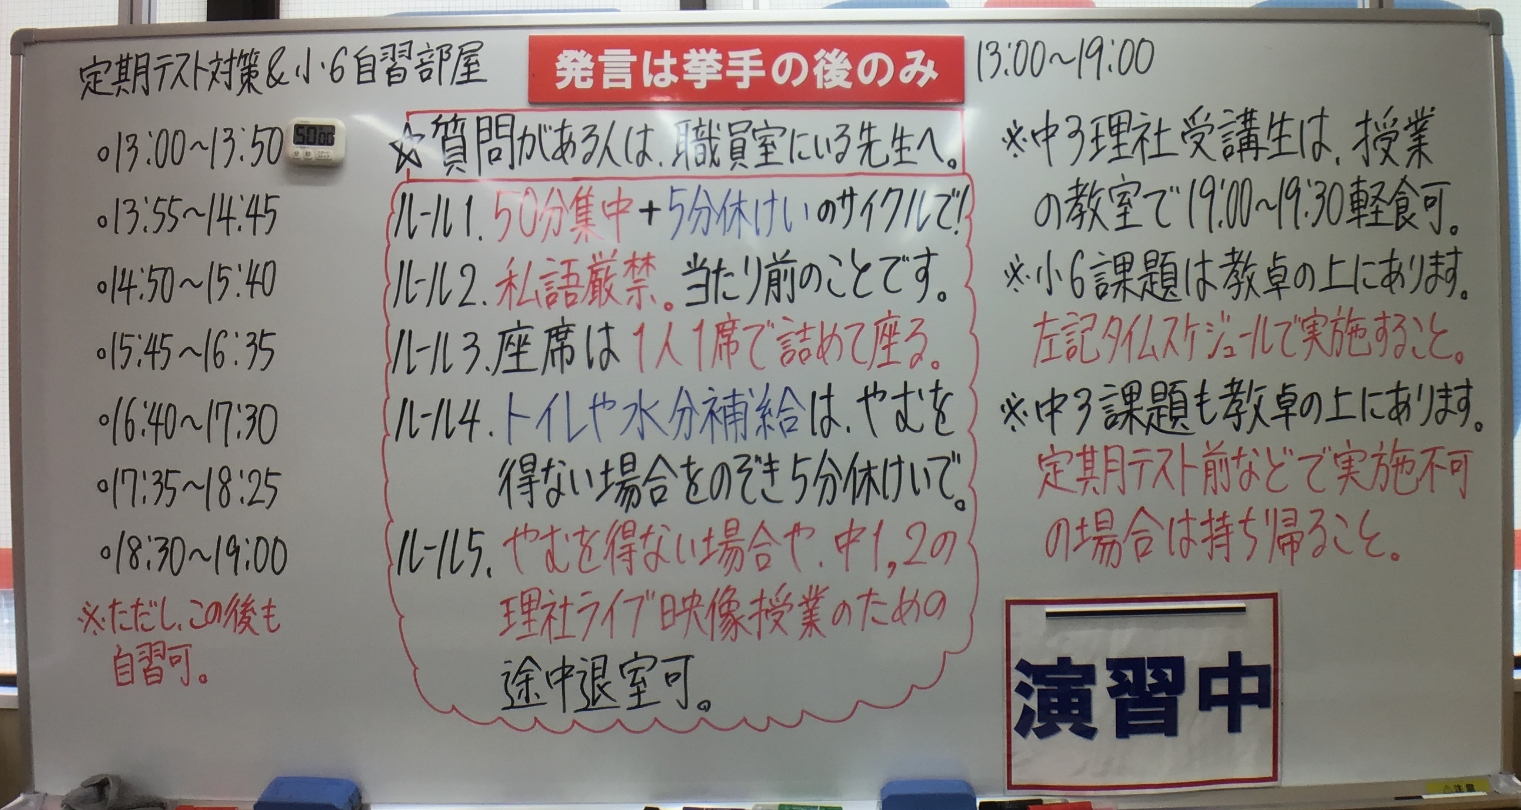 定期テスト対策&小6自習部屋
発言は挙手の後のみ
13:00~19:00
○13:00~13:50
○13:55~14:45
○14:50~15:40
○15:45~16:35
○16:40~17:30
○17:35~18:25
○18:30~19:00
※ただし、この後も
自習可。
☆質問がある人は、職員室にいる先生へ。
ルール1. 50分集中+5分休けいのサイクルで!
ルール2. 私語厳禁。当たり前のことです。
ルール3. 座席は1人1席で詰めて座る。
ルール4. トイレや水分補給は、やむを
得ない場合をのぞき5分休けいで。
ルール5. やむを得ない場合や、中1,2の
理社ライブ映像授業のための
途中退室可。
※中3理社受講生は、授業
の教室で19:00~19:30軽食可。
※小6課題は教卓の上にあります。
左記タイムスケジュールで実施すること。
※中3課題も教卓の上にあります。
定期テスト前などで実施不可
の場合は持ち帰ること。
演習中